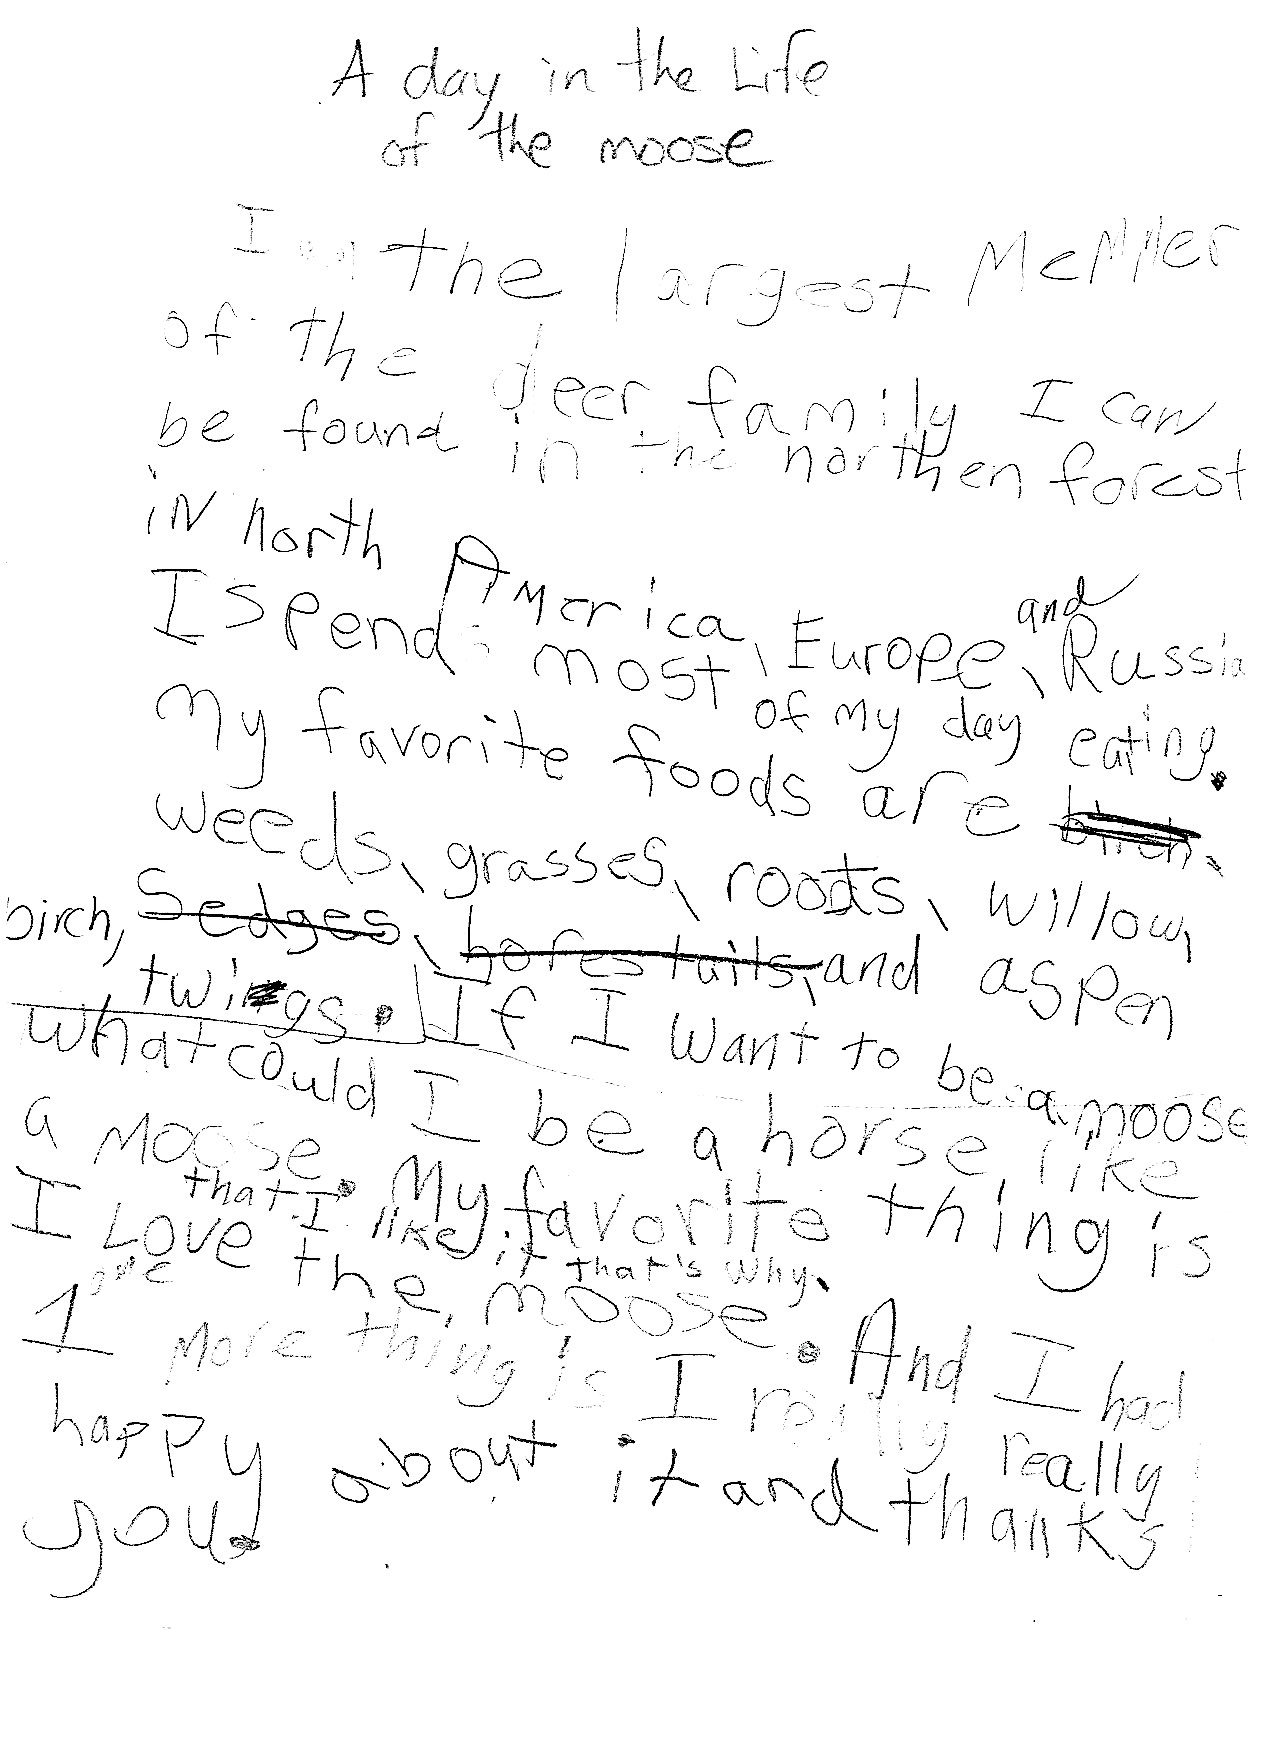 A day in the Life
of the moose
I am the largest MeMber
of the deer family I can
be found in the northen forest
iN north America, Europe, and Russia
I spend most of my day eating.
My favorite foods are birch,
weeds, grasses, roots, willow,
birch, Sedges, horestails, and aspen
twigs. If I want to be a moose
what could I be a horse, like
a moose. My favorite thing is
that I like it that's why.
I Love the, moose. And I had
1 one more thing is I really really
happy about it and thanks
you.